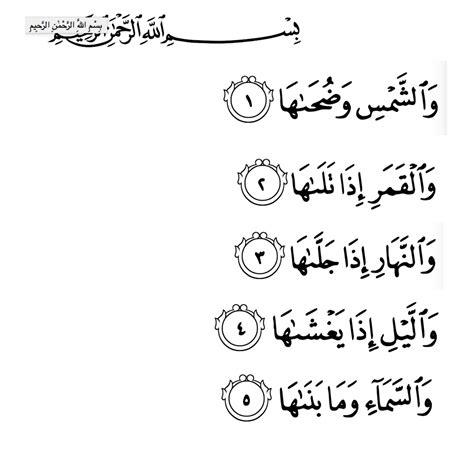 بِسْمِ اللَّهِ الرَّحْمَٰنِ الرَّحِيمِ
بِسْمِ اللَّهِ الرَّحْمَٰنِ الرَّحِيمِ
وَٱلشَّمْسِ وَضُحَىٰهَا ١
وَٱلْقَمَرِ إِذَا تَلَىٰهَا ٢
وَٱلنَّهَارِ إِذَا جَلَّىٰهَا ٣
وَٱلَّيْلِ إِذَا يَغْشَىٰهَا ٤
وَٱلسَّمَآءِ وَمَا بَنَىٰهَا ٥